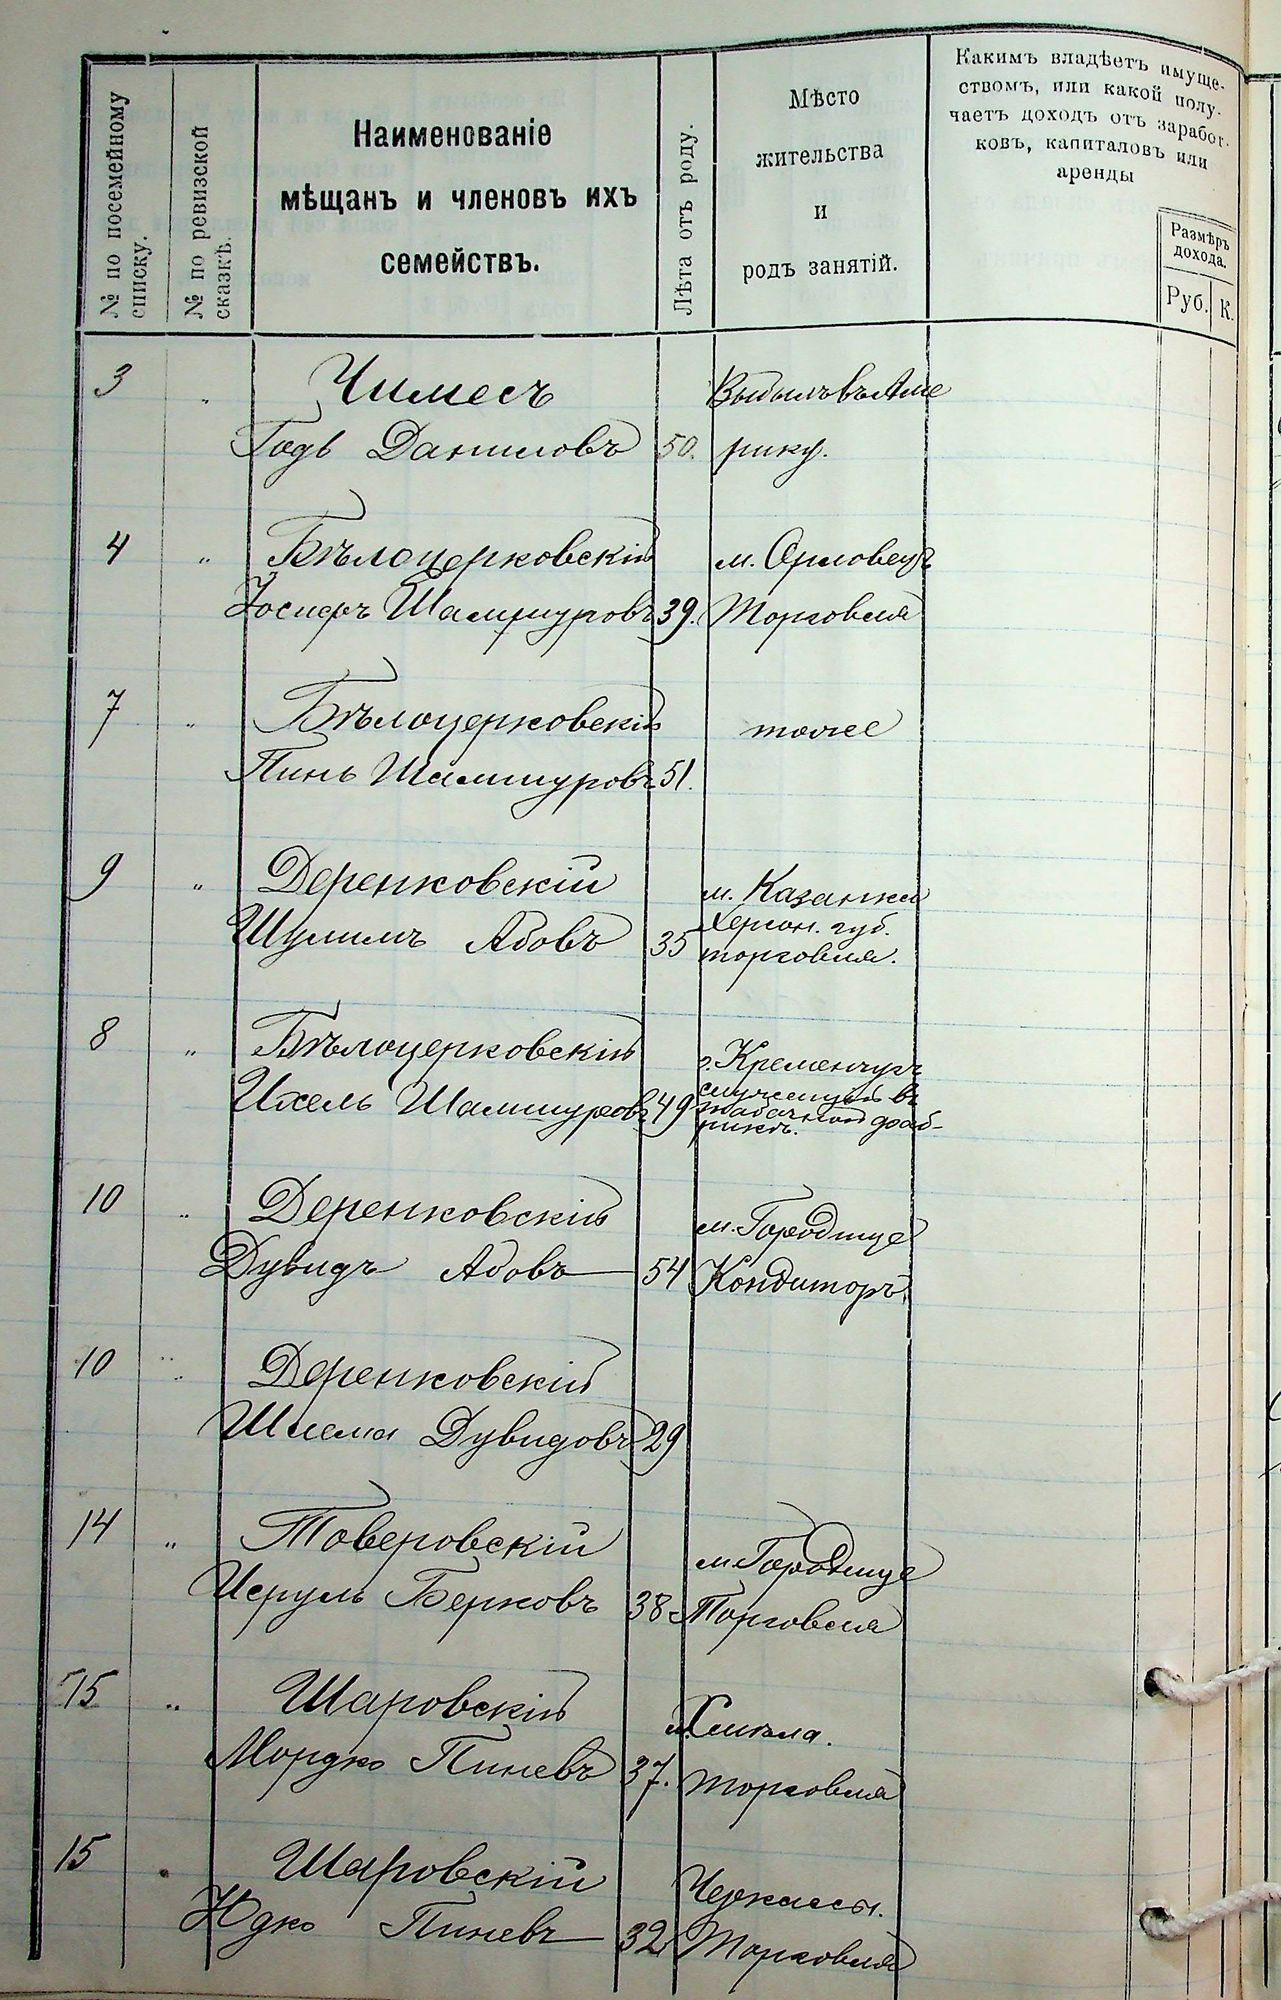 № по посемейному
списку.
№ по ревизской
сказкѣ.
Наименованіе
мѣщанъ и членовъ ихъ
семействъ.
Лѣта отъ роду.
Мѣсто
жительства
и
родъ занятій.
Какимъ владѣетъ имуще-
ствомъ, или какой полу-
чаетъ доходъ отъ заработ-
ковъ, капиталовъ или
аренды
Размѣръ
дохода.
Руб. К.
3 " Чимесъ Выбылъ въ Аме
Годь Даниловъ 50. рику.
4 " Бѣлоцерковскій м. Орловецъ
Іосифъ Шамшуровъ 39. Торговля
7 " Бѣлоцерковскій тоже
Пинь Шамшуровъ 51.
9 " Деренковскій м. Казанка
Херсон. губ.
Шулимъ Абовъ 35 торговля.
8 " Бѣлоцерковскій г. Кременчугъ
служащій въ
Ихель Шамшуровъ 49 табачной фаб-
рикѣ.
10 " Деренковскій м. Городище
Дувидъ Абовъ 54 Кондиторъ.
10 " Деренковскій
Шлема Дувидовъ 29
14 " Товеровскій м. Городище
Исруль Берковъ 38 Торговля
15 " Шаровскій м. Смѣла.
Мордко Пиневъ 37. торговля
15 Шаровскій Черкассы.
Юдко Пиневъ 32 Торговля